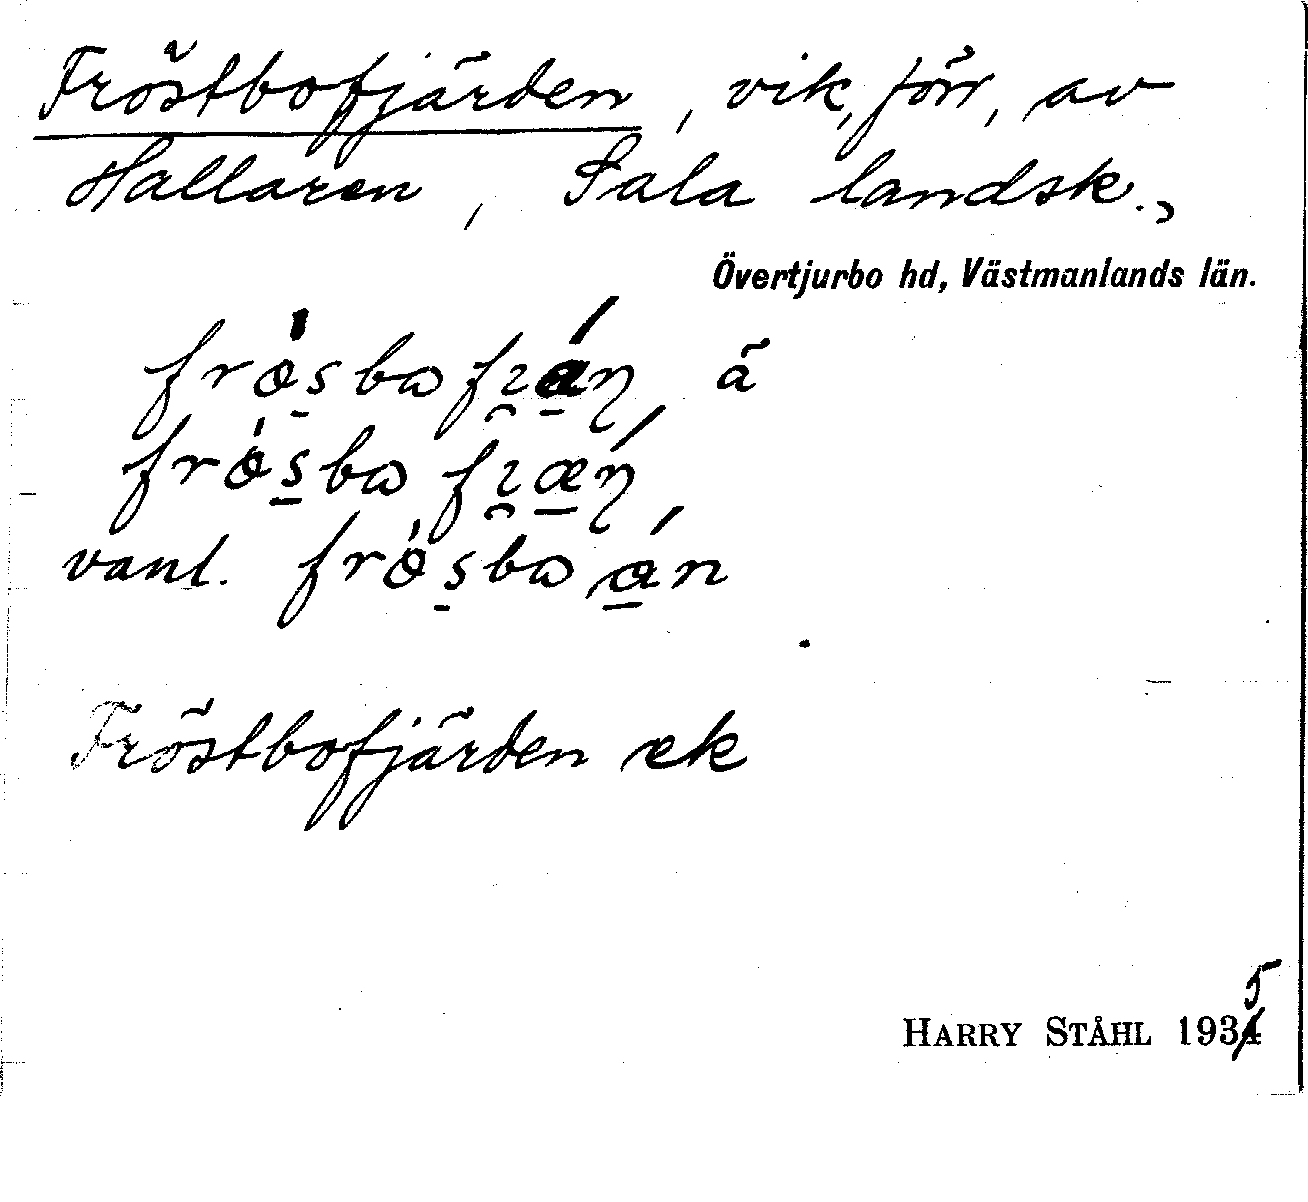 Fröstbofjärden, vik, förr, av
Hallaren, Sala landsk.,
Övertjurbo hd, Västmanlands län.
ä
vanl.
Fröstbofjärden ek
HARRY STÅHL 1935